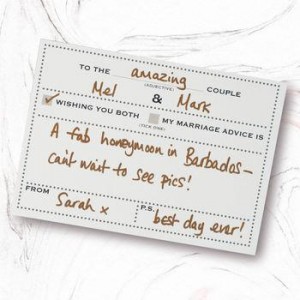 TO THE amazing COUPLE
(ADJECTIVE)
Mel & Mark
WISHING YOU BOTH MY MARRIAGE ADVICE IS
(TICK ONE)
A fab honeymoon in Barbados –
can't wait to see pics!
FROM P.S.
Sarah x best day ever!